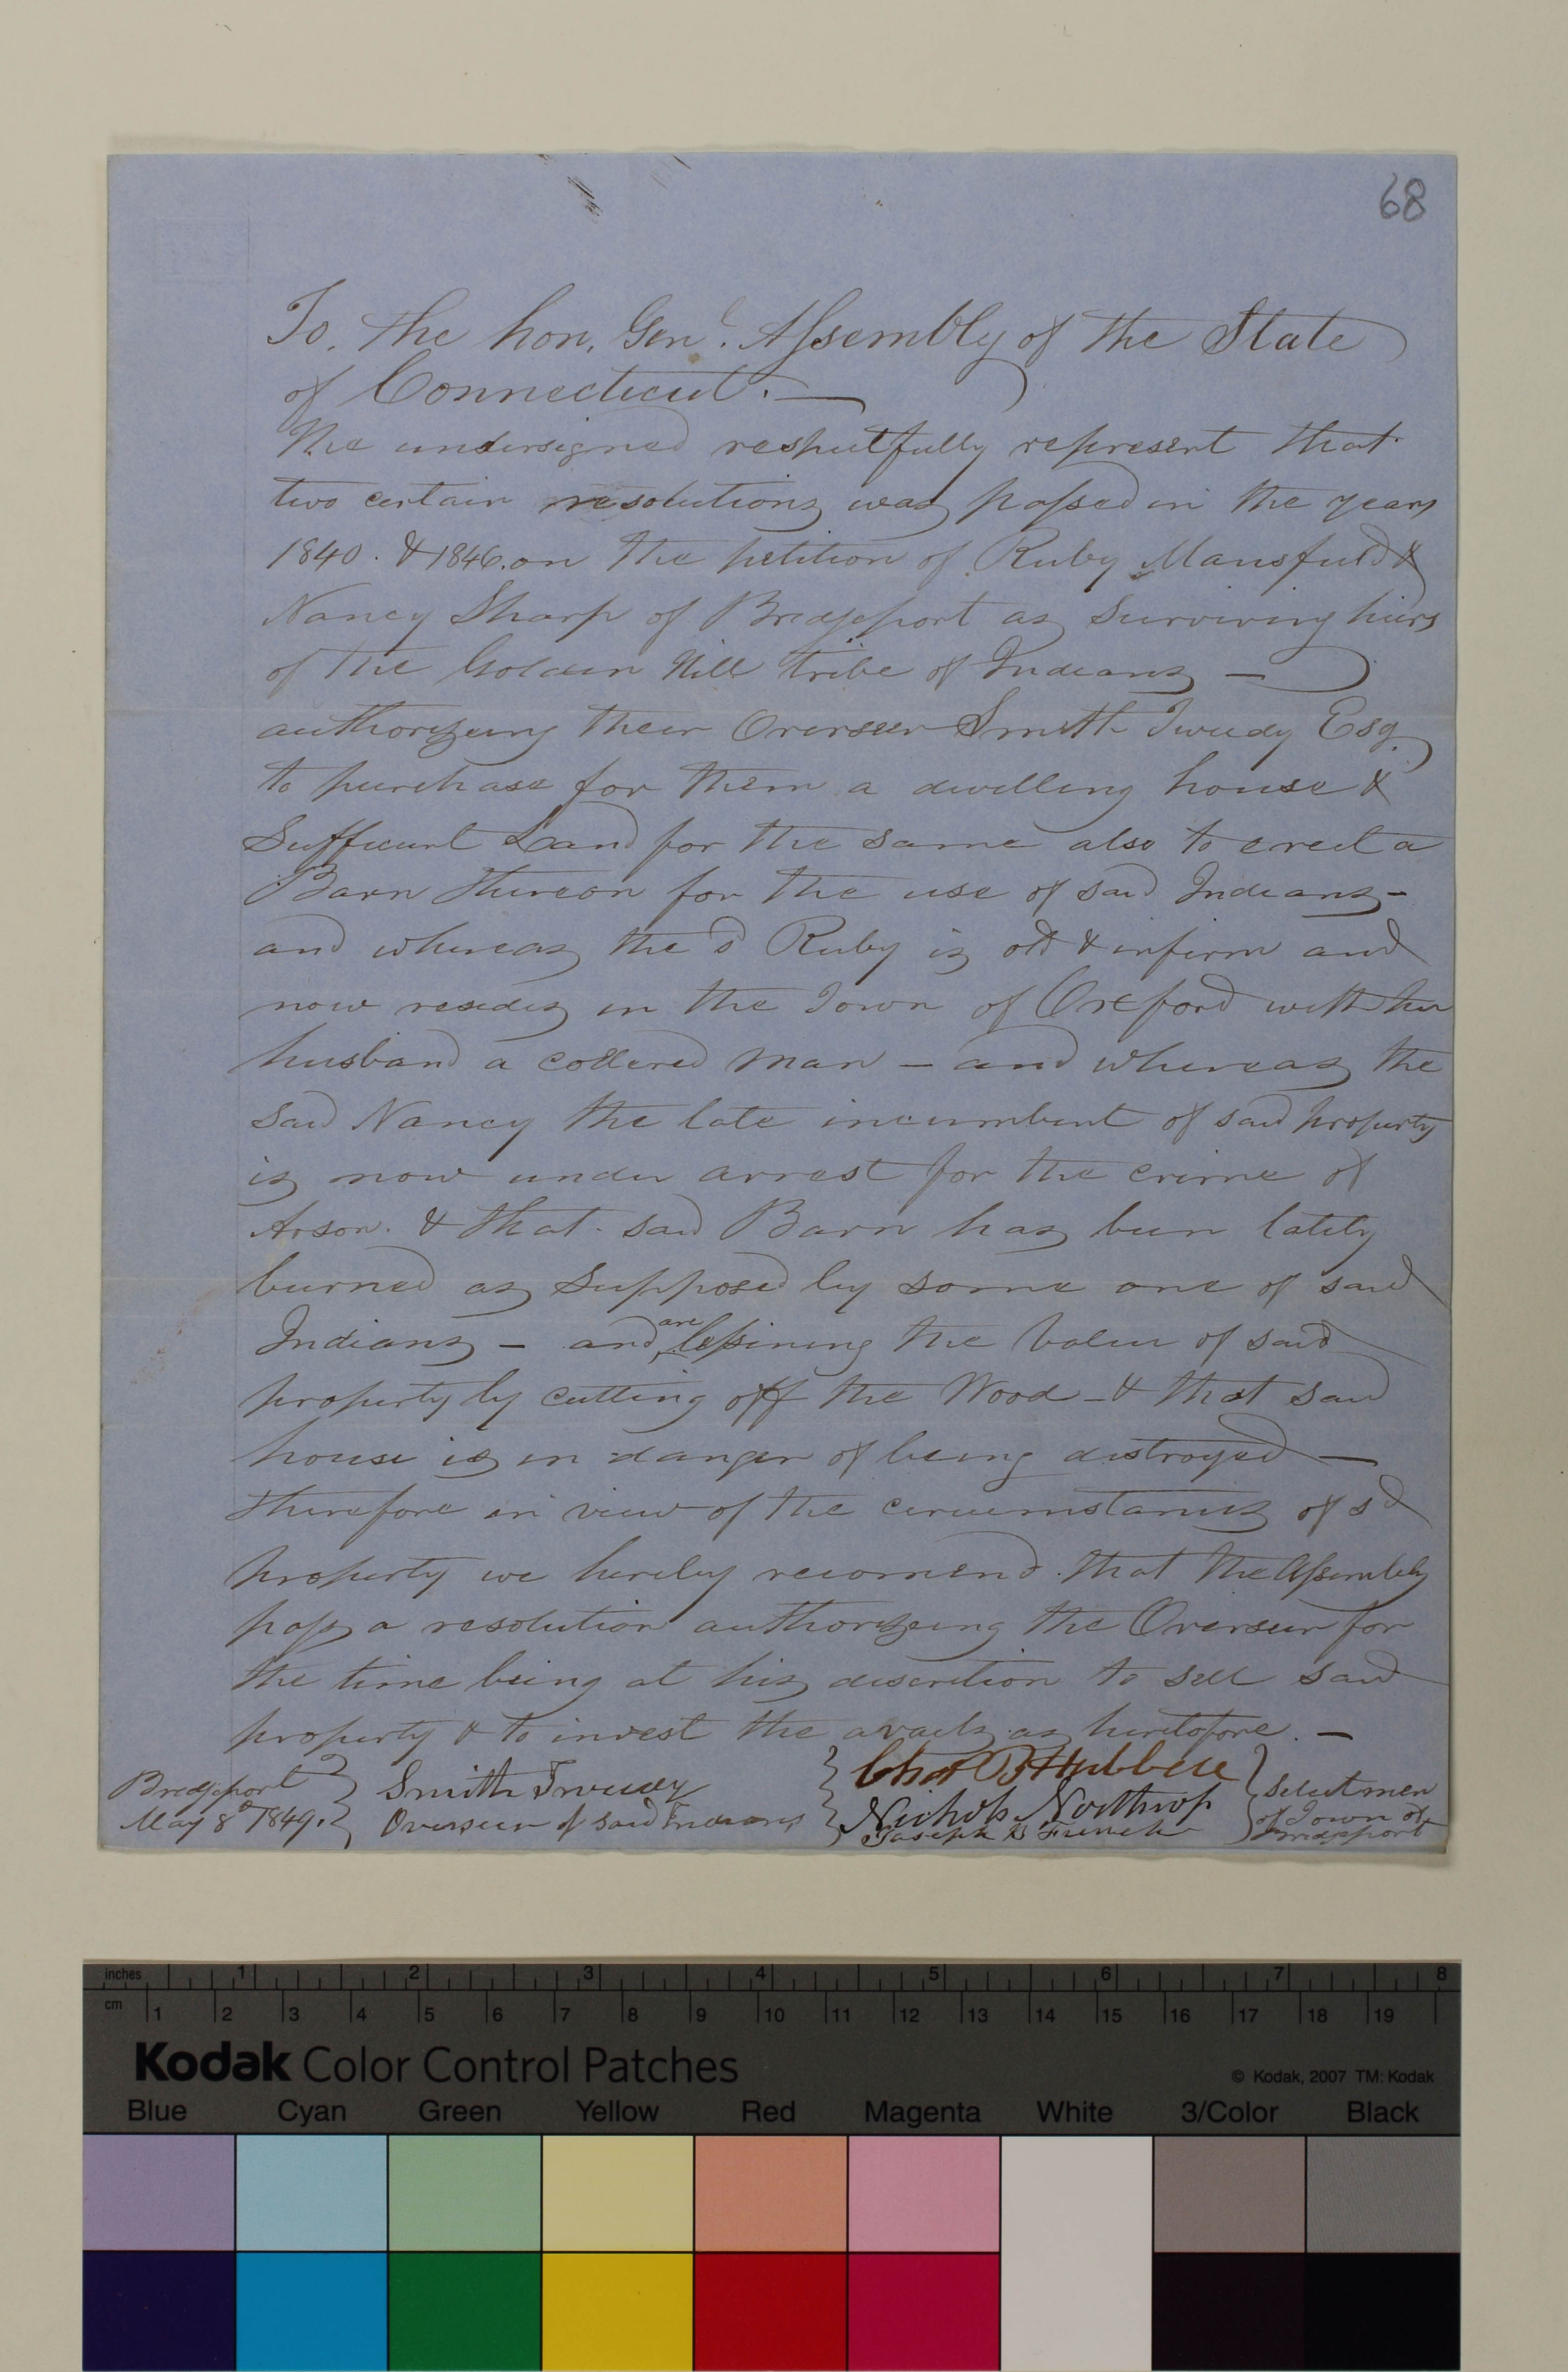 68
To, the hon, Genl. Assembly of the State
of Connecticut. —
The undersigned respectfully represent that
two certain resolutions was passed in the years
1840. & 1846. on the petition of Ruby Mansfield &
Nancy Sharp of Bridgeport as surviving heirs
of the Golden Hill tribe of Indians —
authorizeing their Overseer Smith Tweedy Esq.
to purchase for them a dwelling house &
Sufficient Land for the same also to erect a
Barn thereon for the use of said Indians -
and whereas the sd Ruby is old & infirm and
now resides in the Town of Oxford with her
husband a collered man — and whereas the
said Nancy the late incumbent of said property
is now under arrest for the crime of
Arson. & that said Barn has been lately
burned as supposed by some one of said
Indians — and are lessining the value of said
property by cutting off the Wood - & that said
house is in danger of being distroyed —
therefore in view of the circumstances of sd
property we hereby recomend. that the Assembly
pass a resolution authorizeing the Overseer for
the time being at his discretion to sell said
property & to invest the avails as heretofore. —
Bridgeport May 8th 1849.
Smith Tweedy
Overseer of said Indians
Chas B Hubbell
Nichols Northrop
Joseph B French
Selectmen
of Town of
Bridgeport
inches 1 2 3 4 5 6 7 8
cm 1 2 3 4 5 6 7 8 9 10 11 12 13 14 15 16 17 18 19
Kodak Color Control Patches
© Kodak, 2007 TM: Kodak
Blue Cyan Green Yellow Red Magenta White 3/Color Black